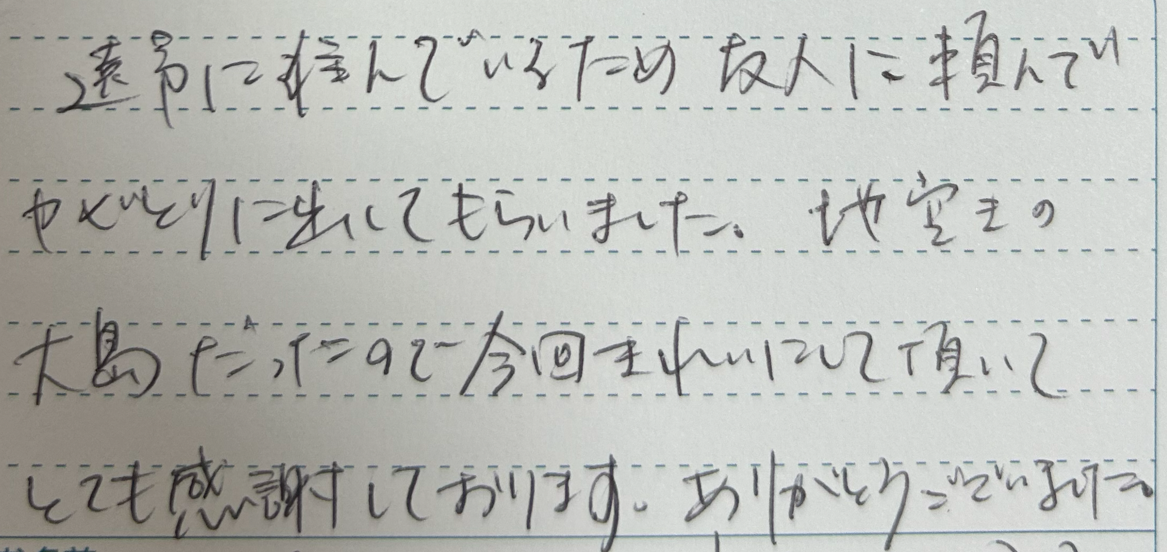 遠方に住んでいるため 友人に頼んで
やくいとりに出してもらいました。
大島だったので今回きれいにして頂いて
とても感謝しております。ありがとうございました。